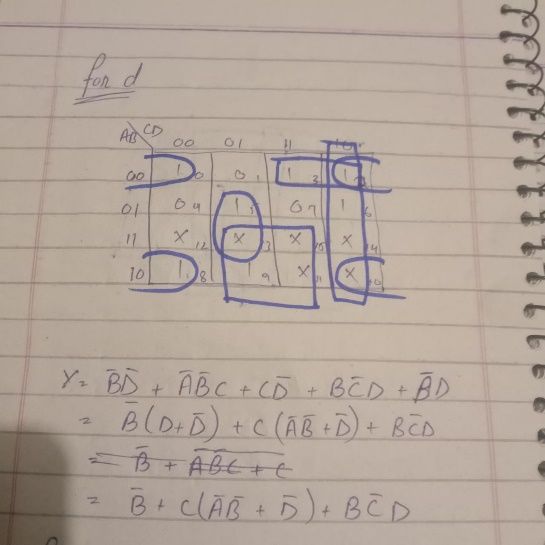 for d
AB CD
00 01 11 10
00 1 0 0 1 1 3 1 2
01 0 4 1 5 0 7 1 6
11 X 12 X 13 X 15 X 14
10 1 8 1 9 X 11 X 10
Y = B̅D̅ + A̅B̅C + CD̅ + BC̅D + B̅D
= B̅(D+D̅) + C(A̅B̅+D̅) + BC̅D
= B̅ + C(A̅B̅ + D̅) + BC̅D